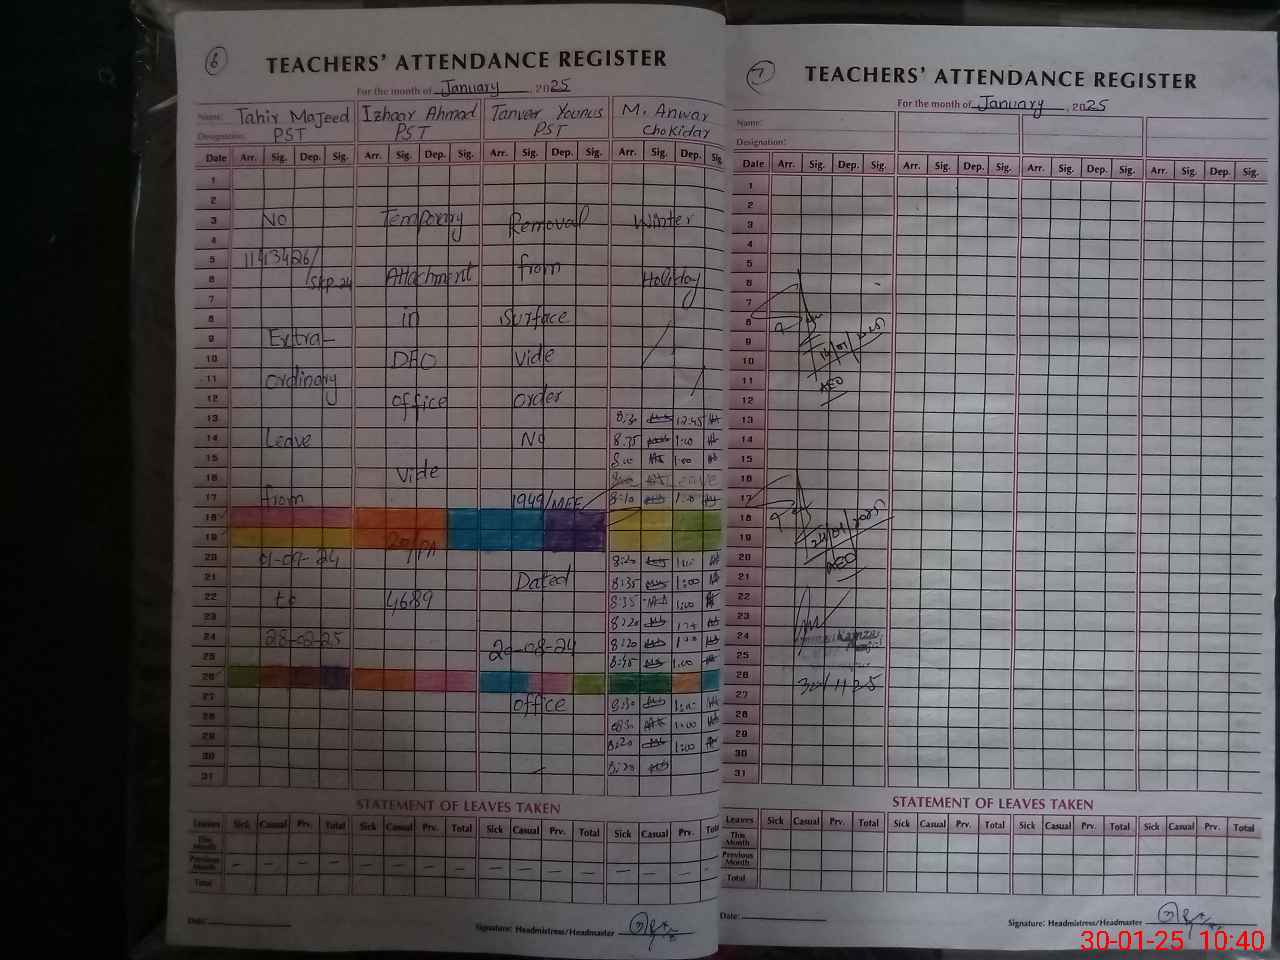 6
TEACHERS' ATTENDANCE REGISTER
For the month of January, 2025
Name: Tahir Majeed Izhaar Ahmad Tanveer Younus M. Anwar
Designation: PST PST PST Chokidar
Date Arr. Sig. Dep. Sig. Arr. Sig. Dep. Sig. Arr. Sig. Dep. Sig. Arr. Sig. Dep. Sig.
1
2
3 No Temporary Removal Winter
4
5 from
6 Attachment Holiday
7
8 in Surface
9 Extra-
10 DEO Vide
11 ordinary
12 office order
13 8:30 12:45
14 Leave No 1:00
15 8:00 1:00
16 Vide Leave
17 from 1949/MEE 8:10 1:00
18
19
20 01-09-24 8:20
21 Dated 8:35 1:00
22 to 4689 8:35 1:00
23 8:20
24 28-02-25 8:20
25 20-08-24 8:45 1:00
26
27 office 8:30 1:00
28 0830 1:00
29 8:20 1:00
30 8:20
31
STATEMENT OF LEAVES TAKEN
Leaves Sick Casual Prv. Total Sick Casual Prv. Total Sick Casual Prv. Total Sick Casual Prv. Total
This Month
Previous Month – – – – – – – – – – – – – – – –
Total
Date:
Signature: Headmistress/Headmaster
7
TEACHERS' ATTENDANCE REGISTER
For the month of January, 2025
Name:
Designation:
Date Arr. Sig. Dep. Sig. Arr. Sig. Dep. Sig. Arr. Sig. Dep. Sig. Arr. Sig. Dep. Sig.
1
2
3
4
5
6
7
8
9
10 14/01/2025
11 AEO
12
13
14
15
16
17
18
19 24/01/2025
20 AEO
21
22
23
24
25
26
27
28
29
30
31
STATEMENT OF LEAVES TAKEN
Leaves Sick Casual Prv. Total Sick Casual Prv. Total Sick Casual Prv. Total Sick Casual Prv. Total
This Month
Previous Month
Total
Date:
Signature: Headmistress/Headmaster
30-01-25 10:40